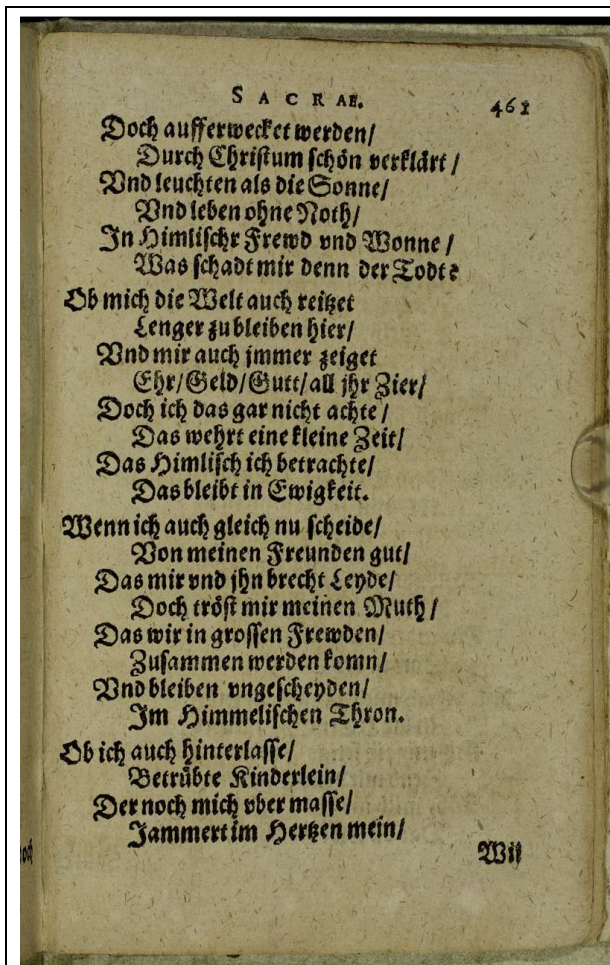 SACRAE. 461
Doch aufferwecket werden/
Durch Christum schön verklärt/
Vnd leuchten als die Sonne/
Vnd leben ohne Noth/
In Himlischr Frewd vnd Wonne/
Was schadt mir denn der Todt?
Ob mich die Welt auch reitzet
Lenger zu bleiben hier/
Vnd mir auch jmmer zeiget
Ehr/Geld/Gutt/all jhr Zier/
Doch ich das gar nicht achte/
Das wehrt eine kleine Zeit/
Das Himlisch ich betrachte/
Das bleibt in Ewigkeit.
Wenn ich auch gleich nu scheide/
Von meinen Freunden gut/
Das mir vnd jhn brecht Leyde/
Doch tröst mir meinen Muth/
Das wir in grossen Frewden/
Zusammen werden komn/
Vnd bleiben vngescheyden/
Im Himmelischen Thron.
Ob ich auch hinterlasse/
Betrübte Kinderlein/
Der noch mich vber masse/
Jammert im Hertzen mein/
Wil